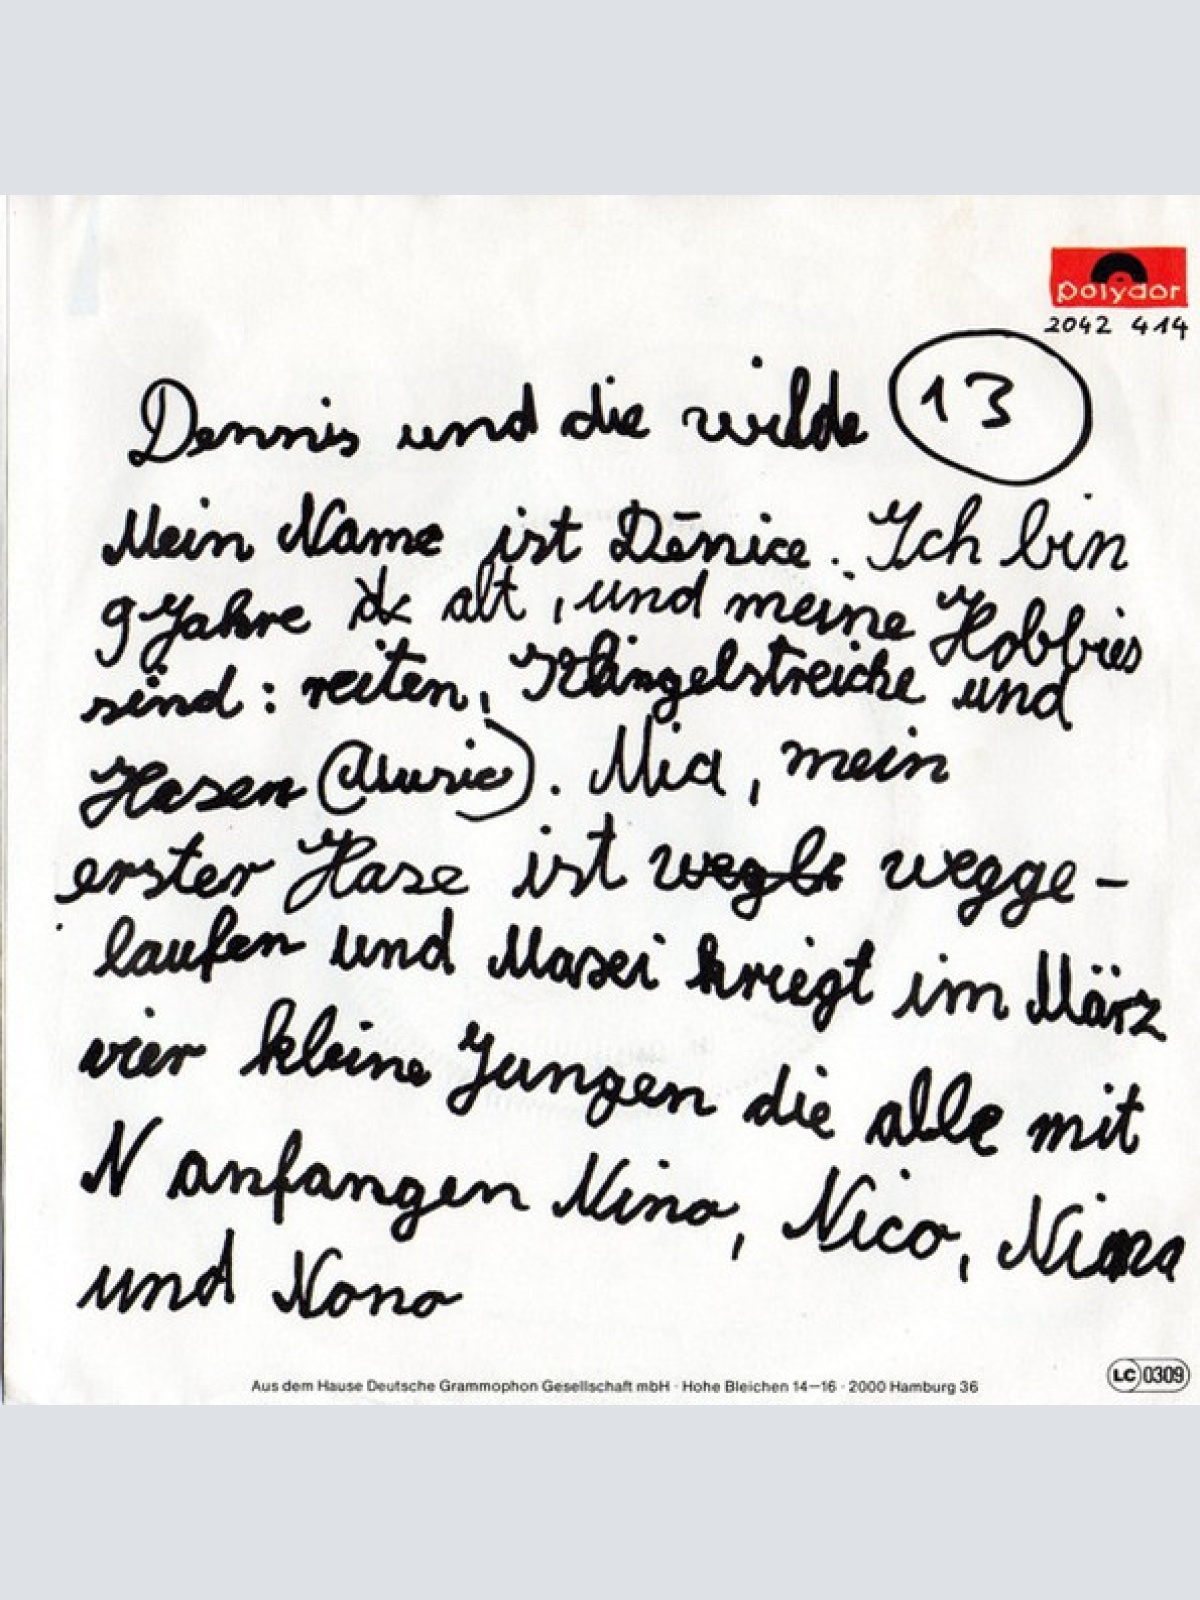 polydor
2042 414
Dennis und die wilde 13
Mein Name ist Dēnice. Ich bin
9 Jahre alt, und meine Hobbies
sind: reiten, Klingelstreiche und
Hasen (Music). Mia, mein
erster Hase ist wegge-
laufen und Masei kriegt im März
vier kleine Jungen die alle mit
N anfangen Nino, Nico, Nina
und Nono
Aus dem Hause Deutsche Grammophon Gesellschaft mbH · Hohe Bleichen 14–16 · 2000 Hamburg 36
LC 0309